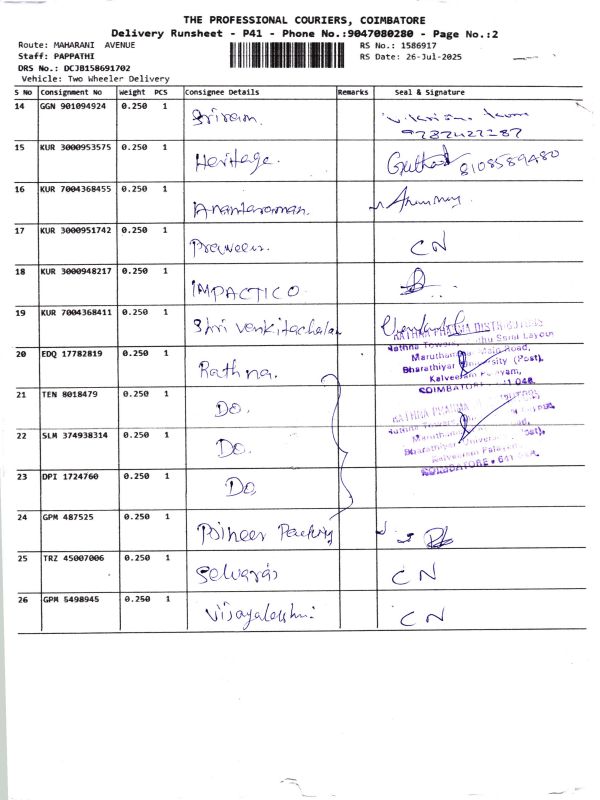 THE PROFESSIONAL COURIERS, COIMBATORE
Delivery Runsheet - P41 - Phone No.:9047080280 - Page No.:2
Route: MAHARANI AVENUE
RS No.: 1586917
Staff: PAPPATHI
RS Date: 26-Jul-2025
DRS No.: DCJB158691702
Vehicle: Two Wheeler Delivery
S No Consignment No Weight PCS Consignee Details Remarks Seal & Signature
14 GGN 901094924 0.250 1 Sriram.
9787427287
15 KUR 3000953575 0.250 1 Heritage. 8108589480
16 KUR 7004368455 0.250 1 Anantaraman.
17 KUR 3000951742 0.250 1 Praween. CN
18 KUR 3000948217 0.250 1 IMPACTICO
19 KUR 7004368411 0.250 1 Shri Venkitachalam
RATHNA PHARMA DISTRIBUTORS
Rathna Towers, Layout
20 EDQ 17782819 0.250 1 Rathna.
Main Road,
Bharathiyar University (Post),
Kalveeram Palayam,
COIMBATORE 641 046.
21 TEN 8018479 0.250 1 Do.
RATHNA PHARMA
Rathna Towers, Layout
22 SLM 374938314 0.250 1 Do.
Bharathiyar University (Post),
Kalveeram Palayam
COIMBATORE
23 DPI 1724760 0.250 1 Do,
24 GPM 487525 0.250 1 Poineer Packing
25 TRZ 45007006 0.250 1 Selvaraj CN
26 GPM 5498945 0.250 1 Vijayalakshmi CN